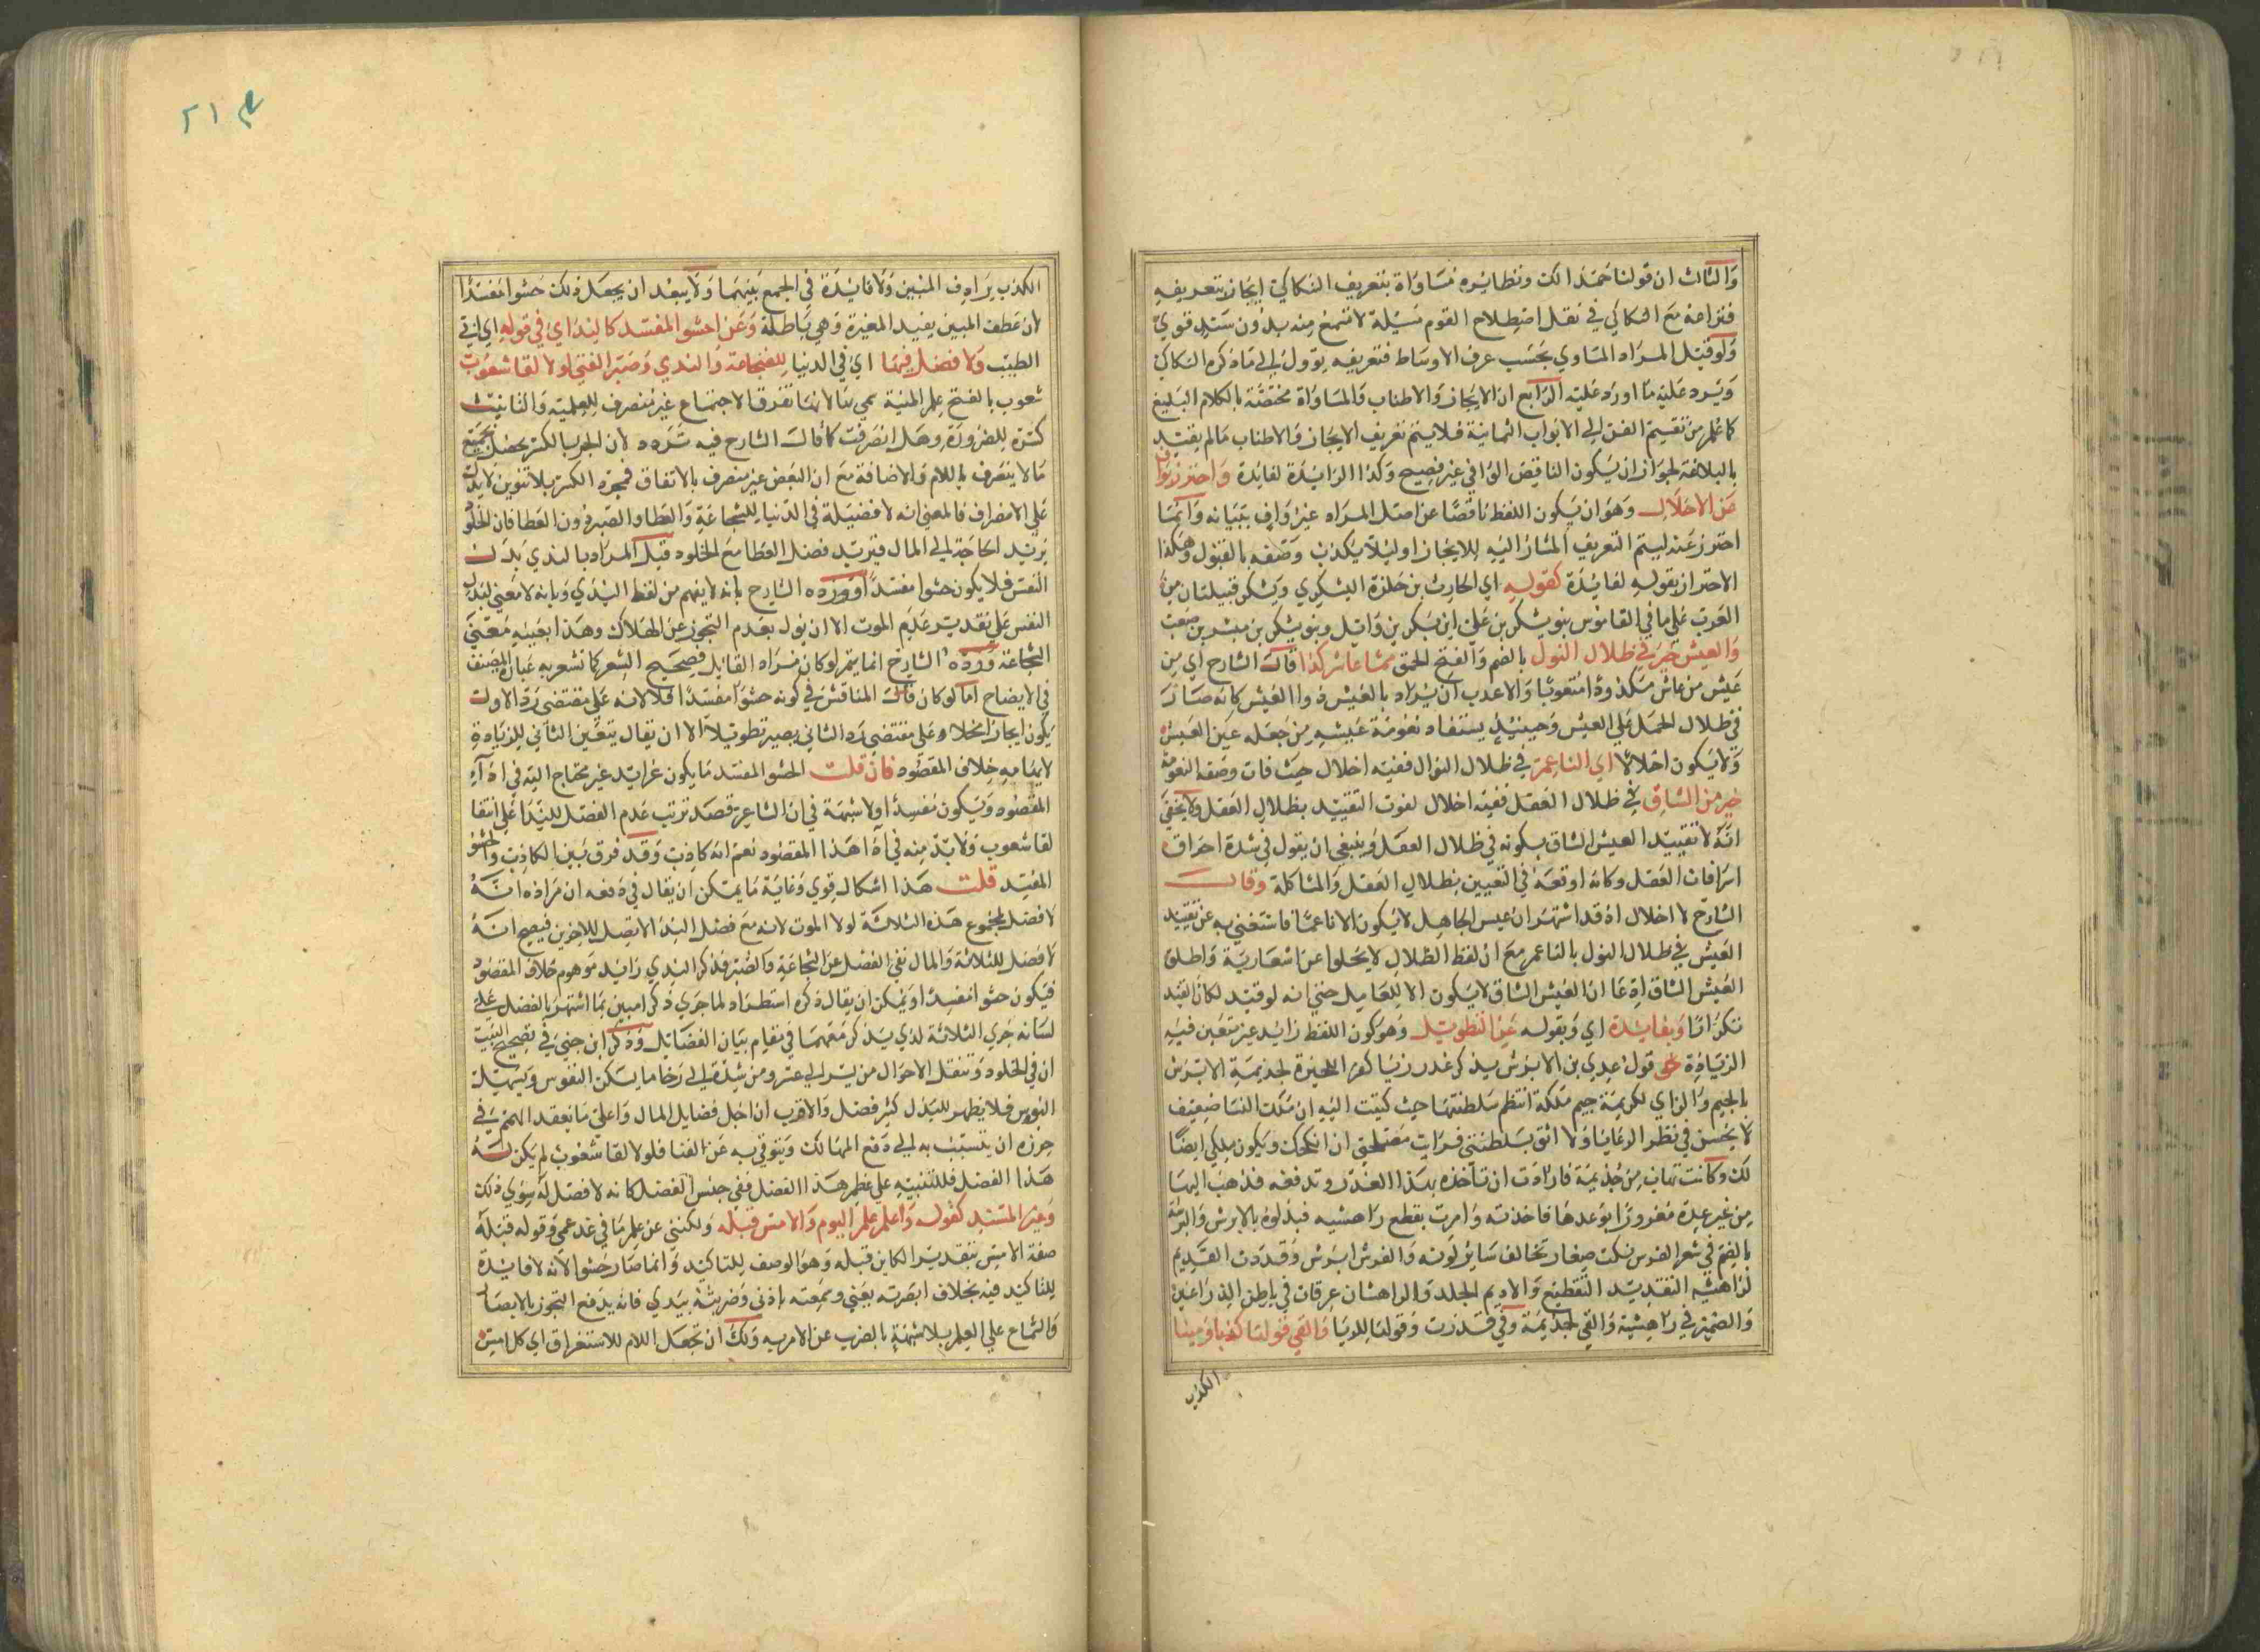 والثالث ان قولنا حمدا لك ونظائره مساواة بتعريف السكاكي ايجاز بتعريفه
فنزاعه مع السكاكي في نقل اصطلاح القوم مسئلة لا تسمع منه بدون سند قوي
ولو قيل المراد المساوي بحسب عرف الاوساط فتعريفه يؤول الى ما ذكره السكاكي
ويرد عليه ما اورد عليه الرابع ان الايجاز والاطناب والمساواة مختصة بالكلام البليغ
كما علم من تقسيم الفن الى الابواب الثمانية فلا يتم تعريف الايجاز والاطناب ما لم يقيد
بالبلاغة لجواز ان يكون الناقص الوافي غير فصيح وكذا الزايد لفائدة واحترز بواف
عن الاخلال وهو ان يكون اللفظ ناقصا عن اصل المراد غير واف ببيانه وانما
احترز عنه ليتم التعريف المشار اليه للايجاز او ليلا يكذب وصفه بالقبول وهكذا
الاحتراز بقوله لفائدة كقوله اي الحارث بن حلزة اليشكري ويشكر قبيلتان من
العرب على ما في القاموس بنو يشكر بن علي ابن بكر بن وائل وبنو يشكر بن مبشر بن صعب
والعيش خير في ظلال النوك بالضم والفتح الحمق ممن عاش كدا قال الشارح اي من
عيش من عاش مكدودا متعوبا والاعذب ان يراد بالعيش ذو العيش كانه صار
في ظلال الحمل على العيش وحينئذ يستفاد نعومة عيشه من جعله عين العيش
ولا يكون اخلالا اي الناعم في ظلال النوك ففيه اخلال حيث فات وصف النعومة
خير من الشاق في ظلال العقل ففيه اخلال لفوت التقييد بظلال العقل ولا يخفى
انه لا تقييد العيش الشاق بكونه في ظلال العقل وينبغي ان يقول في شدة احراق
اشراقات العقل وكانه اوقعه في التعبير بظلال العقل والمشاكلة وقال
الشارح لا اخلال اذ قد اشتهر ان عيش الجاهل لا يكون الا ناعما فاستغني به عن تقييد
العيش في ظلال النوك بالناعم مع ان لفظ الظلال لا يخلوا عن اشعار به واطلق
العيش الشاق ادعا ان العيش الشاق لا يكون الا للعاقل حتى انه لو قيد لكان القيد
تكرارا وبفائدة اي وبقوله عن التطويل وهو كون اللفظ زايد غير متعين فيه
الزيادة نحو قول عدي بن الابرش يذكر غدر زبا كفرا الحيرة لجذيمة الابرش
بالجيم والزاي لكريمة جيم ملكة انتظم سلطنتها حيث كتبت اليه ان ملك النسا ضعيف
لا يحسن في نظر الرعايا ولا اثق بسلطنتي فرات مصلحتي ان انكحك ويكون ملكي ايضا
لك وكانت تهاب من جذيمة فارادت ان تاخذه بهذا الغدر وتدفعه فذهب اليها
من غير عدة مغرورا بوعدها فاخذته وامرت بقطع راهشيه فبدلوه بالابرش والبرشة
بالضم في شعر الفرس نكت صغار تخالف سائر لونه والفرس ابرش وقددت القديم
لراهشيه التقديد التقطيع والاديم الجلد والراهشان عرقان في باطن الذراعين
والضمير في راهشيه والفي لجذيمة وفي قددت وقولها للزبا والفى قولها كذبا ومينا
الكذب
الكذب يرادف المين ولا فائدة في الجمع بينهما ولا يبعد ان يجعل ذلك حشوا مفسدا
لان عطف المبين يفيد المغيرة وهي باطلة وعن احشو المفسد كالندا اي في قوله اي ابي
الطيب ولا فضل فيها اي في الدنيا للشجاعة والندي وصبر الفتى لولا لقا شعوب
شعوب بالفتح علم المنية سمي بها لانها تفرق الاجتماع غير منصرف للعلمية والتانيث
كسره للضرورة وهل انصرفت كما قال الشارح فيه تردد لان الجر بالكسر يحصل لجميع
ما لا ينصرف باللام والاضافة مع ان البعض غير منصرف بالاتفاق فمجرد الكسر بلا تنوين لا يدل
على الانصراف فالمعنى انه لا فضيلة في الدنيا للشجاعة والعطا والصبر دون العطا فان الخلود
يزيد الحاجة الى المال فيزيد فضل العطا مع الخلود قيل المراد بالندي بذل
النفس فلا يكون حشوا مفسدا اورده الشارح بانه لا يفهم من لفظ الندي وبانه لا معنى لبذل
النفس على تقدير عدم الموت الا ان يؤل بعدم التجوز عن الهلاك وهذا بعينه معنى
الشجاعة ورده الشارح انما يتم لو كان مراد القائل فصحيح الشعر كما تشعر به عبارة المصنف
في الايضاح اما لو كان قال المناقش في كونه حشوا مفسدا فلا لانه على مقتضى رد الاول
يكون ايجازا مخلا وعلى مقتضى رد الثاني يصير تطويلا الا ان يقال يتعين الثاني للزيادة
لايهامه خلاف المقصود فان قلت الحشو المفسد ما يكون غرايد غير محتاج اليه في اداء
المقصود ويكون مفسدا ولا شبهة في ان الشاعر قصد ترتب عدم الفضل للندا على انتفا
لقا شعوب ولا بد منه في اداء هذا المقصود نعم انه كاذب وقد فرق بين الكاذب والحشو
المفيد قلت هذا اشكال قوي وغاية ما يمكن ان يقال في دفعه ان مراده انه
لا فضل لمجموع هذه الثلاثة لولا الموت لانه مع فضل الندا الا يصل للاخرين فيصح انه
لا فضل للثلاثة والمال نفي الفضل عن الشجاعة والصبر فذكر الندي زايد موهم خلاف المقصود
فيكون حشوا مفسدا ويمكن ان يقال ذكره استطراد لما جرى ذكر امبين بما اشتهر بالفضل على
لسانه جرى الثلاثة لذي يذكر معهما في مقام بيان الفضايل وذكر ابن جني في تصحيح البيت
ان في الخلود وتنقل الاحوال من يسر الى عسر ومن شدة الى رخا ما يسكن النفوس ويسهيل
البؤس فلا يظهر للبذل كثير فضل والاقرب ان اجل فضايل المال واعلى ما يعقد الهمم في
حرزه ان يتسبب به الى دفع المهالك ويتوقي به عن الفنا فلولا لقا شعوب لم يكن له
هذا الفضل فللتنبيه على عظم هذا الفضل نفي جنس الفضل كانه لا فضل له سوى ذلك
وغير المفسد كقوله واعلم علم اليوم والامس قبله ولكنني عن علم ما في غد عمي وقوله قبله
صفة الامس بتقدير الكاين قبله وهو الوصف للتاكيد وانما صار حشوا لانه لا فائدة
للتاكيد فيه بخلاف ابصرته بعيني وسمعته باذني وضربته بيدي فانه يدفع التجوز بالابصار
والسماع على العلم بلا شبهة بالضرب عن الامر به ولك ان تجعل اللام للاستغراق اي كل امس